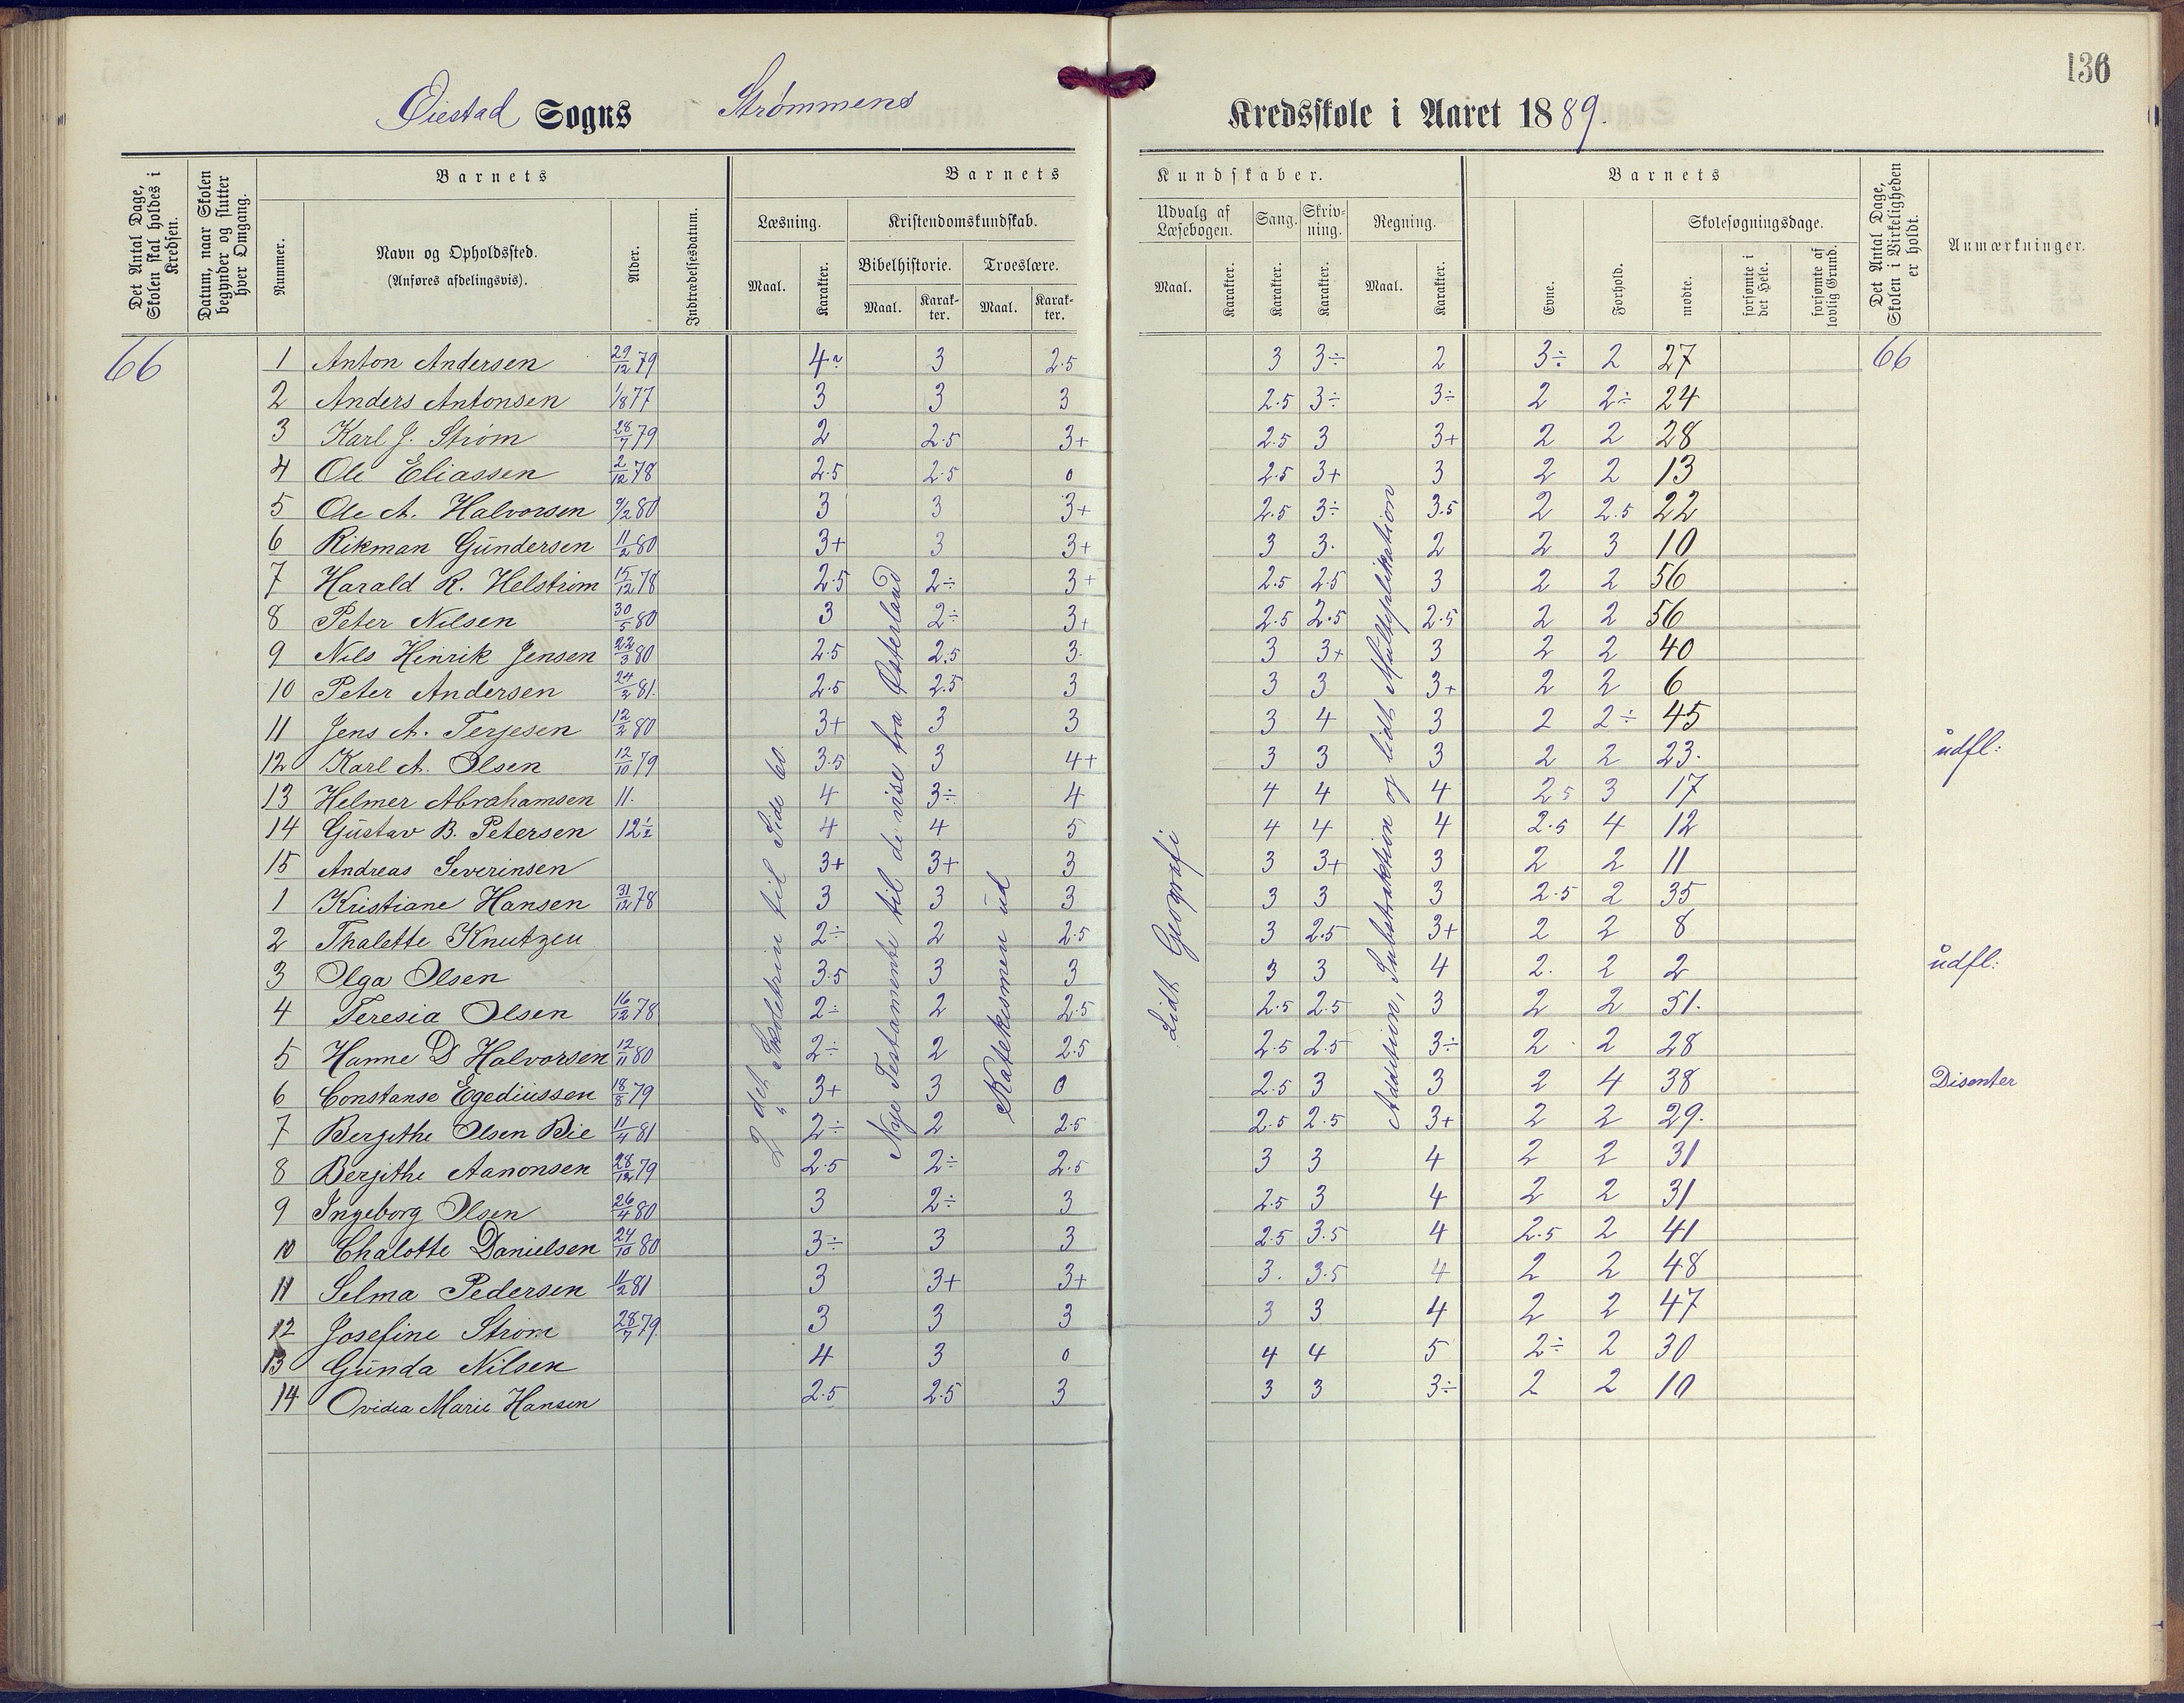 136
Øiestad Sogns Strømmens Kredsskole i Aaret 1889.
Det Antal Dage, Skolen skal holdes i Kredsen.
Datum, naar Skolen begynder og slutter hver Omgang.
Barnets
Nummer.
Navn og Opholdssted.
(Anføres afdelingsvis).
Alder.
Indtrædelsesdatum.
Barnets Kundskaber.
Læsning.
Maal.
Karakter.
Kristendomskundskab.
Bibelhistorie.
Maal.
Karakter.
Troeslære.
Maal.
Karakter.
Udvalg af Læsebogen.
Maal.
Karakter.
Sang.
Karakter.
Skrivning.
Karakter.
Regning.
Maal.
Karakter.
Barnets
Evne.
Forhold.
Skolesøgningsdage.
mødte.
forsømte i det Hele.
forsømte af lovlig Grund.
Det Antal Dage, Skolen i Virkeligheden er holdt.
Anmærkninger.
66 1 Anton Andersen 29/12 79 4 3 2.5 3 3÷ 2 3÷ 2 27 66
2 Anders Antonsen 1/8 77 3 3 3 2.5 3÷ 3÷ 2 2÷ 24
3 Karl J. Strøm 28/7 79 2 2.5 3+ 2.5 3 3+ 2 2 28
4 Ole Eliassen 2/12 78 2.5 2.5 0 2.5 3+ 3 2 2 13
5 Ole A. Halvorsen 9/2 80 3 3 3+ 2.5 3÷ 3.5 2 2.5 22
6 Rikman Gundersen 11/2 80 3+ 3 3+ 3 3. 2 2 3 10
7 Harald R. Helstrøm 15/12 78 2.5 2÷ 3+ 2.5 2.5 3 2 2 56
8 Peter Nilsen 30/5 80 3 2÷ 3+ 2.5 2.5 2.5 2 2 56
9 Nils Henrik Jensen 22/3 80 2.5 2.5 3. 3 3+ 3 2 2 40
10 Peter Andersen 24/2 81. 2.5 2.5 3 3 3 3+ 2 2 6
11 Jens A. Terjesen 12/2 80 3+ 3 3 3 4 3 2 2÷ 45
12 Karl A. Olsen 12/10 79 3.5 3 4+ 3 3 3 2 2 23. udfl:
13 Helmer Abrahamsen 11. 4 3÷ 4 4 4 4 2 5 3 17
14 Gustav B. Petersen 12½ 4 4 5 4 4 4 2.5 4 12
15 Andreas Severinsen 3+ 3+ 3 3 3+ 3 2 2 11
1 Kristiane Hansen 31/12 78 3 3 3 3 3 3 2.5 2 35
2 Thalette Knutzen 2÷ 2 2.5 3 2.5 3+ 2 2 8
3 Olga Olsen 3.5 3 3 3 3 4 2. 2 2 udfl:
4 Teresia Olsen 16/12 78 2÷ 2 2.5 2.5 2.5 3 2 2 51.
5 Hanne D Halvorsen 12/11 80 2÷ 2 2.5 2.5 2.5 3÷ 2 2 28
6 Constanse Egediussen 18/8 79 3+ 3 0 2.5 3 3 2 4 38 Disenter
7 Berjithe Olsen Bie 11/4 81 2÷ 2 2.5 2.5 2.5 3+ 2 2 29.
8 Berjithe Aanonsen 28/12 79 2.5 2÷ 2.5 3 3 4 2 2 31
9 Ingeborg Olsen 26/4 80 3 2÷ 3 2.5 3 4 2 2 31
10 Chalotte Danielsen 24/10 80 3÷ 3 3 2.5 3.5 4 2.5 2 41
11 Selma Pedersen 11/2 81 3 3+ 3+ 3. 3.5 4 2 2 48
12 Josefine Strøm 28/7 79. 3 3 3 3 3 4 2 2 47
13 Gunda Nilsen 4 3 0 4 4 5 2÷ 2 30
14 Ovidia Marie Hansen 2.5 2.5 3 3 3 3÷ 2 2 10
2 det Skoletrin til Side 60.
Nye Testamente til de vise fra Østerland
Katekismen ud
Lidt Geografi
Addition, Substraktion og lidt Multiplikation